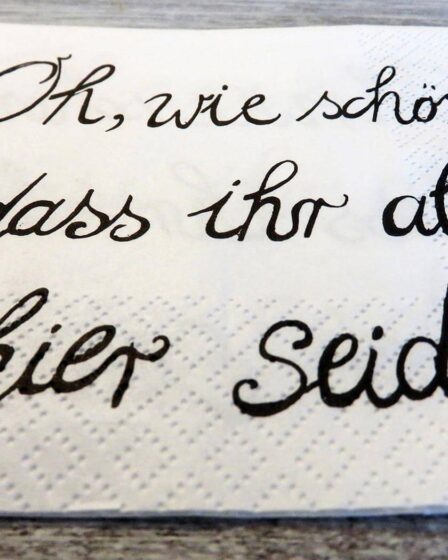 Oh, wie schön
dass ihr
hier seid